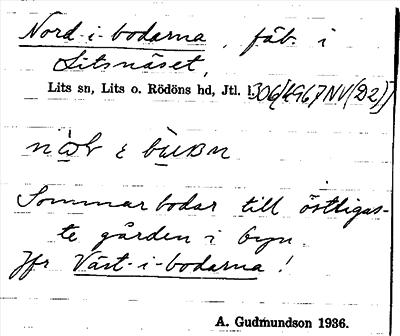 Nord-i-bodarna, fäb. i
Litsnäset,
Lits sn, Lits o. Rödöns hd, Jtl.
Sommarbodar till östligas-
te gården i byn.
Jfr Väst-i-bodarna!
A. Gudmundson 1936.